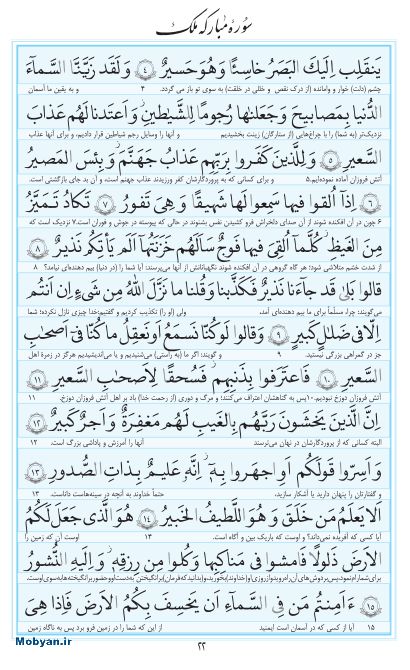 سُورَهٔ مُبارکهٔ مُلک
يَنقَلِب اِلَيكَ البَصَرُ خاسِئًا وَ هُوَ حَسيرٌ ﴿٤﴾ وَ لَقَد زَيَّنَّا السَّماءَ
چشم (دلت) خوار و وامانده (از درک نقص و خللی در خلقت) به سوی تو باز می گردد. ۴ و به یقین ما آسمان
الدُّنيا بِمَصابيحَ وَ جَعَلناها رُجومًا لِلشَّيٰطينِ وَ اَعتَدنا لَهُم عَذابَ
نزدیک‌تر (به شما) را با چراغ‌هایی (از ستارگان) زینت بخشیدیم و آنها را وسایل رجم شیاطین قرار دادیم، و برای آنها عذاب
السَّعيرِ ﴿٥﴾ وَ لِلَّذينَ كَفَروا بِرَبِّهِم عَذابُ جَهَنَّمَ وَ بِئسَ المَصيرُ
آتش فروزان آماده نموده‌ایم.۵ و برای کسانی که به پروردگارشان کفر ورزیدند عذاب جهنم است، و آن بد جای بازگشتی است.
﴿٦﴾ اِذا اُلقوا فيها سَمِعوا لَها شَهيقًا وَ هِيَ تَفورُ ﴿٧﴾ تَكادُ تَمَيَّزُ
۶ چون در آن افکنده شوند از آن صدای دلخراش فرو کشیدن نفس بشنوند در حالی که پیوسته در جوش و فوران است.۷ نزدیک است که
مِنَ الغَيظِ كُلَّما اُلقِيَ فيها فَوجٌ سَاَلَهُم خَزَنَتُها اَلَم يَأتِكُم نَذيرٌ ﴿٨﴾
از شدت خشم متلاشی شود؛ هر گاه گروهی در آن افکنده شوند نگهبانانش از آنها می‌پرسند: آیا شما را (در دنیا) بیم دهنده‌ای نیامد؟ ۸
قالوا بَلىٰ قَد جاءَنا نَذيرٌ فَكَذَّبنا وَ قُلنا ما نَزَّلَ اللّٰهُ مِن شَيءٍ اِن اَنتُم
می‌گویند: چرا، مسلّماً برای ما بیم دهنده‌ای آمد، ولی (او را) تکذیب کردیم و گفتیم:خدا چیزی نازل نکرده؛ شما
اِلّا في ضَلالٍ كَبيرٍ ﴿٩﴾ وَ قالوا لَو كُنّا نَسمَعُ اَو نَعقِلُ ما كُنّا في اَصحابِ
جز در گمراهی بزرگی نیستید. ۹ و گویند: اگر ما (به راستی) می‌شنیدیم و یا می‌اندیشیدیم هرگز در زمره اهل
السَّعيرِ ﴿١٠﴾ فَاعتَرَفوا بِذَنبِهِم فَسُحقًا لِاَصحابِ السَّعيرِ ﴿١١﴾
آتش فروزان دوزخ نبودیم.۱۰پس به گناهشان اعتراف می‌کنند؛ و مرگ و دوری (از رحمت خدا) باد بر اهل آتش فروزان دوزخ. ۱۱
اِنَّ الَّذينَ يَخشَونَ رَبَّهُم بِالغَيبِ لَهُم مَغفِرَةٌ وَ اَجرٌ كَبيرٌ ﴿١٢﴾
البته کسانی که از پروردگارشان در نهان می‌ترسند آنها را آمرزش و پاداشی بزرگ است. ۱۲
وَ اَسِرّوا قَولَكُم اَوِ اجهَروا بِهِ اِنَّهُ عَليمٌ بِذاتِ الصُّدورِ ﴿١٣﴾
و گفتارتان را پنهان دارید یا آشکار سازید، حتما خداوند به آنچه در سینه‌هاست داناست. ۱۳
اَلا يَعلَمُ مَن خَلَقَ وَ هُوَ اللَّطيفُ الخَبيرُ ﴿١٤﴾ هُوَ الَّذي جَعَلَ لَكُمُ
آیا کسی که آفریده نمی‌داند؟ و اوست که باریک بین و آگاه است. ۱۴ اوست آن که زمین را
الاَرضَ ذَلولًا فَامشوا في مَناكِبِها وَ كُلوا مِن رِزقِهِ وَ اِلَيهِ النُّشورُ
برای شما رام نمود،پس بر دوش‌های آن راه روید و از روزی او (خداوند) بخورید
﴿١٥﴾ ءَاَمِنتُم مَن فِي السَّماءِ اَن يَخسِفَ بِكُمُ الاَرضَ فَاِذا هِيَ
۱۵ آیا از کسی که در آسمان است ایمنید از این که شما را در زمین فرو برد پس به ناگاه زمین
۲۲
Mobyan.ir